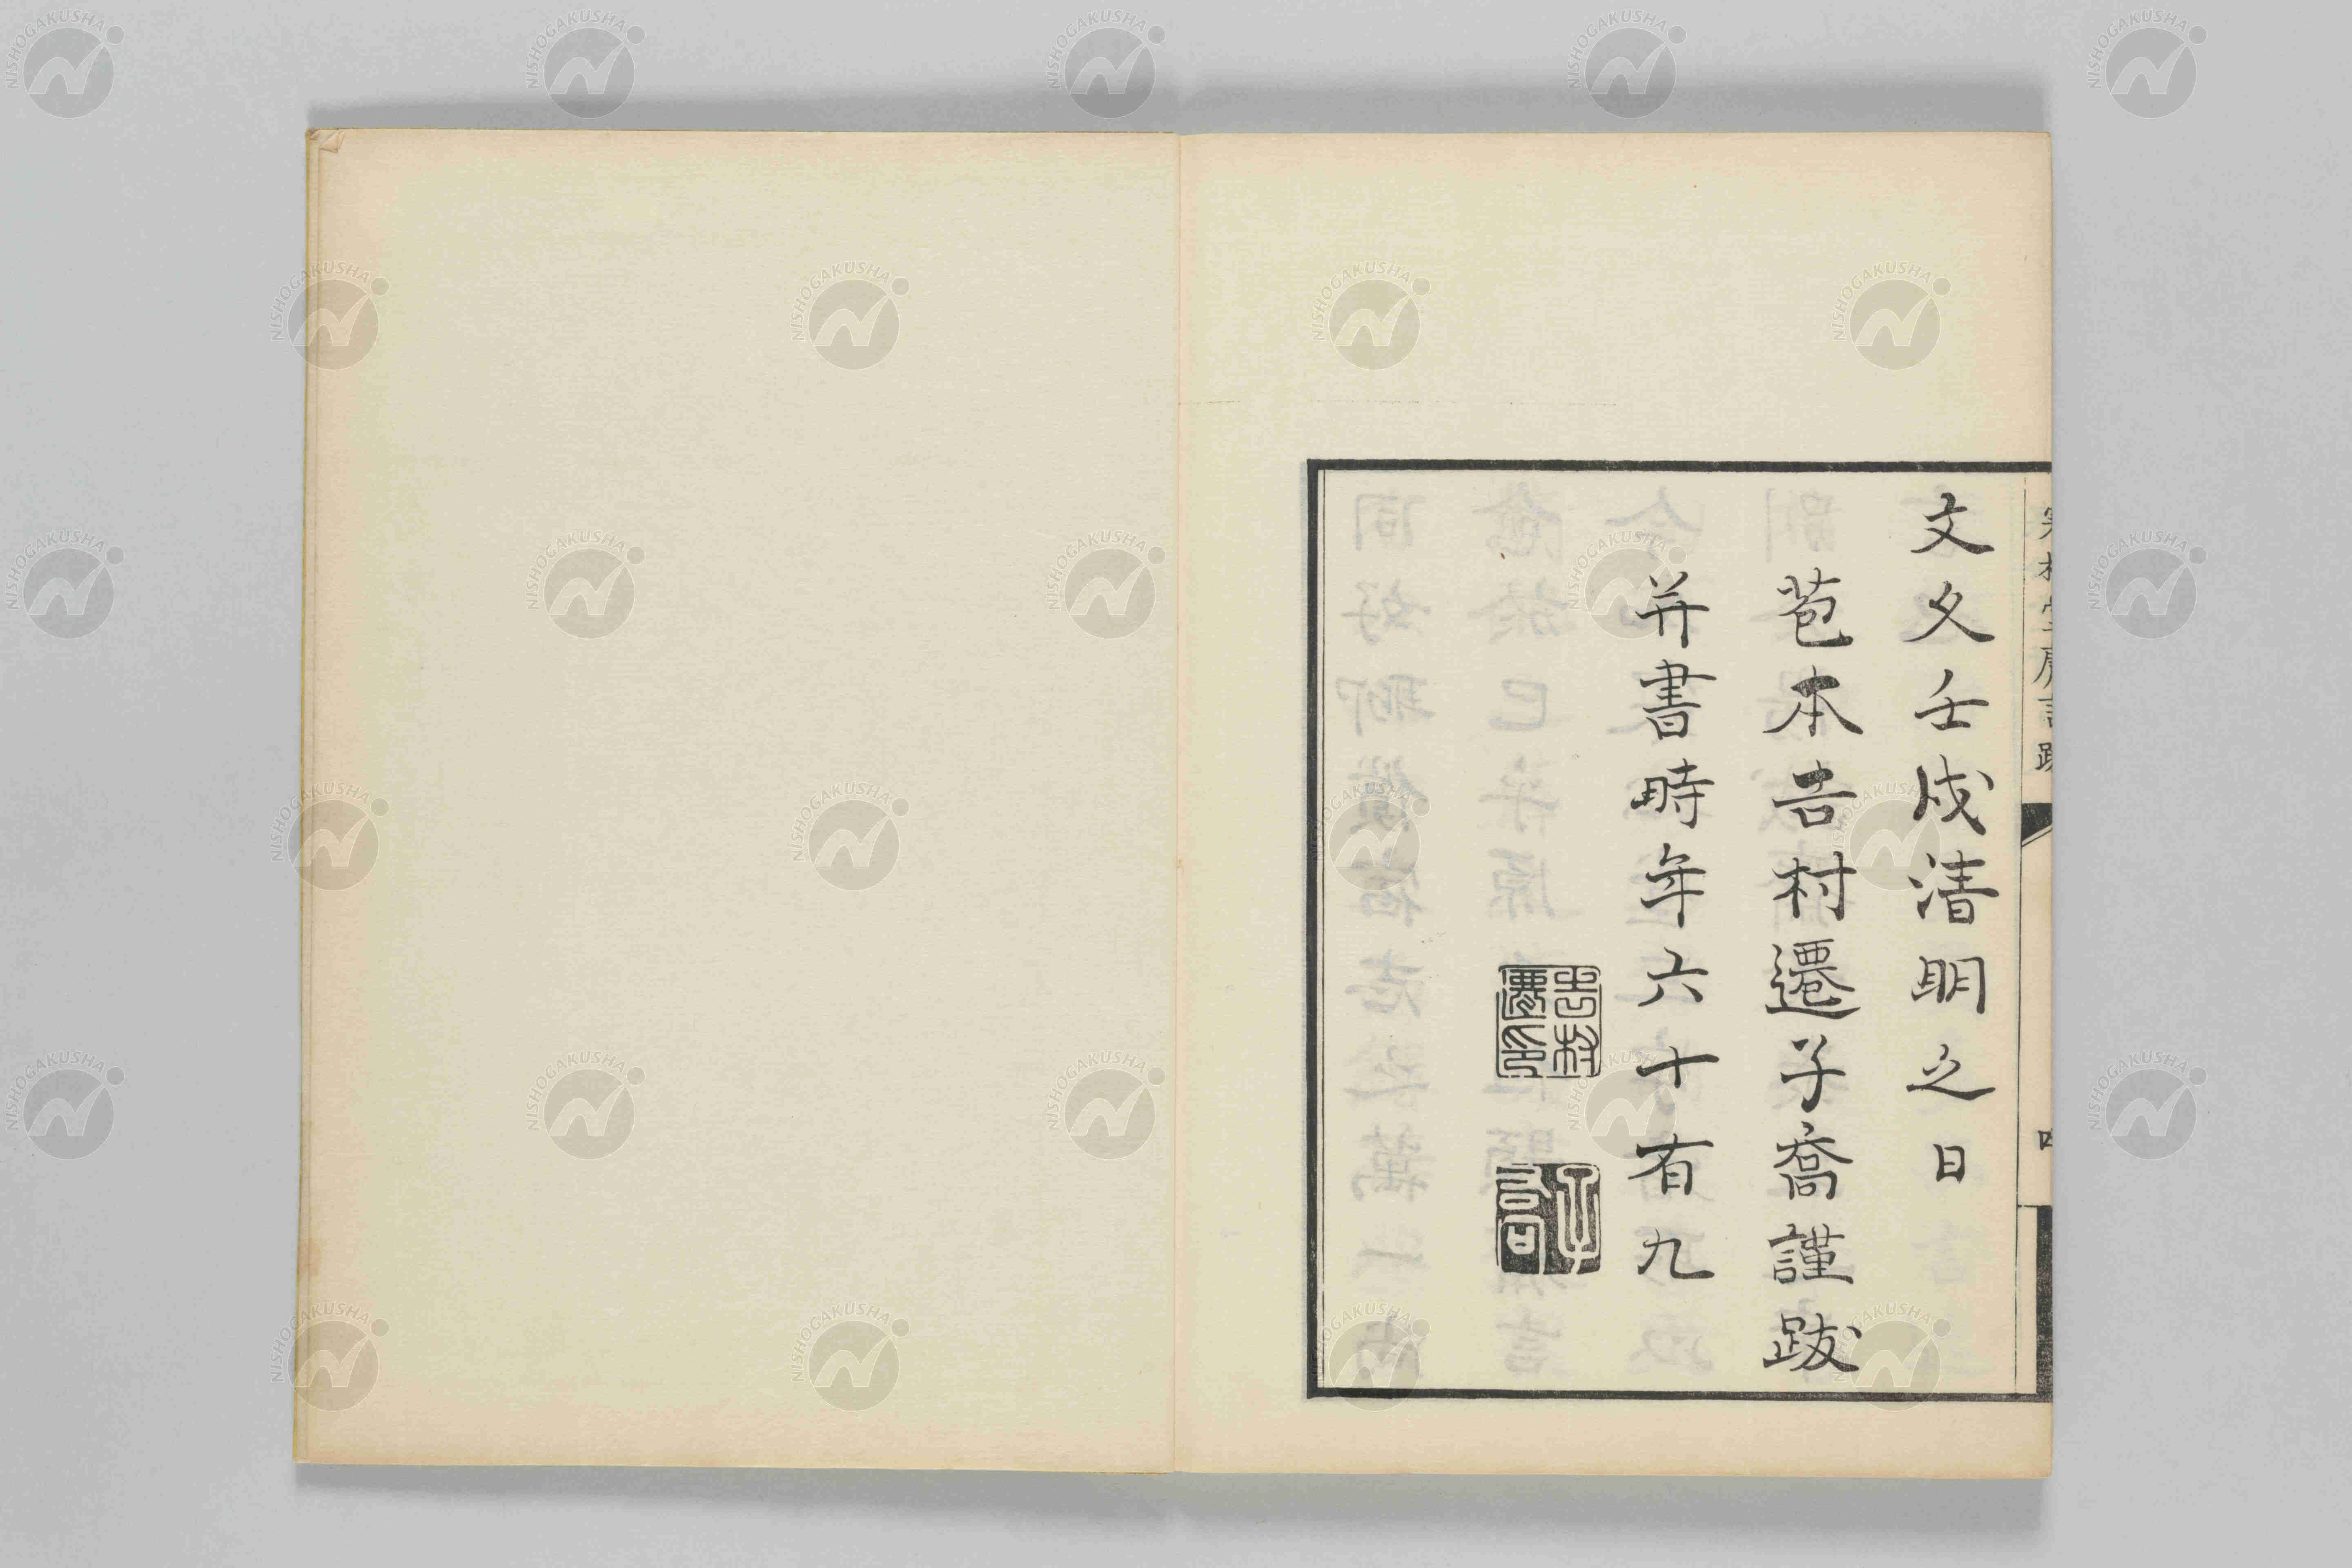 文久壬戌清明之日
苞本吉村遷子喬謹跋
并書時年六十有九
NISHOGAKUSHA